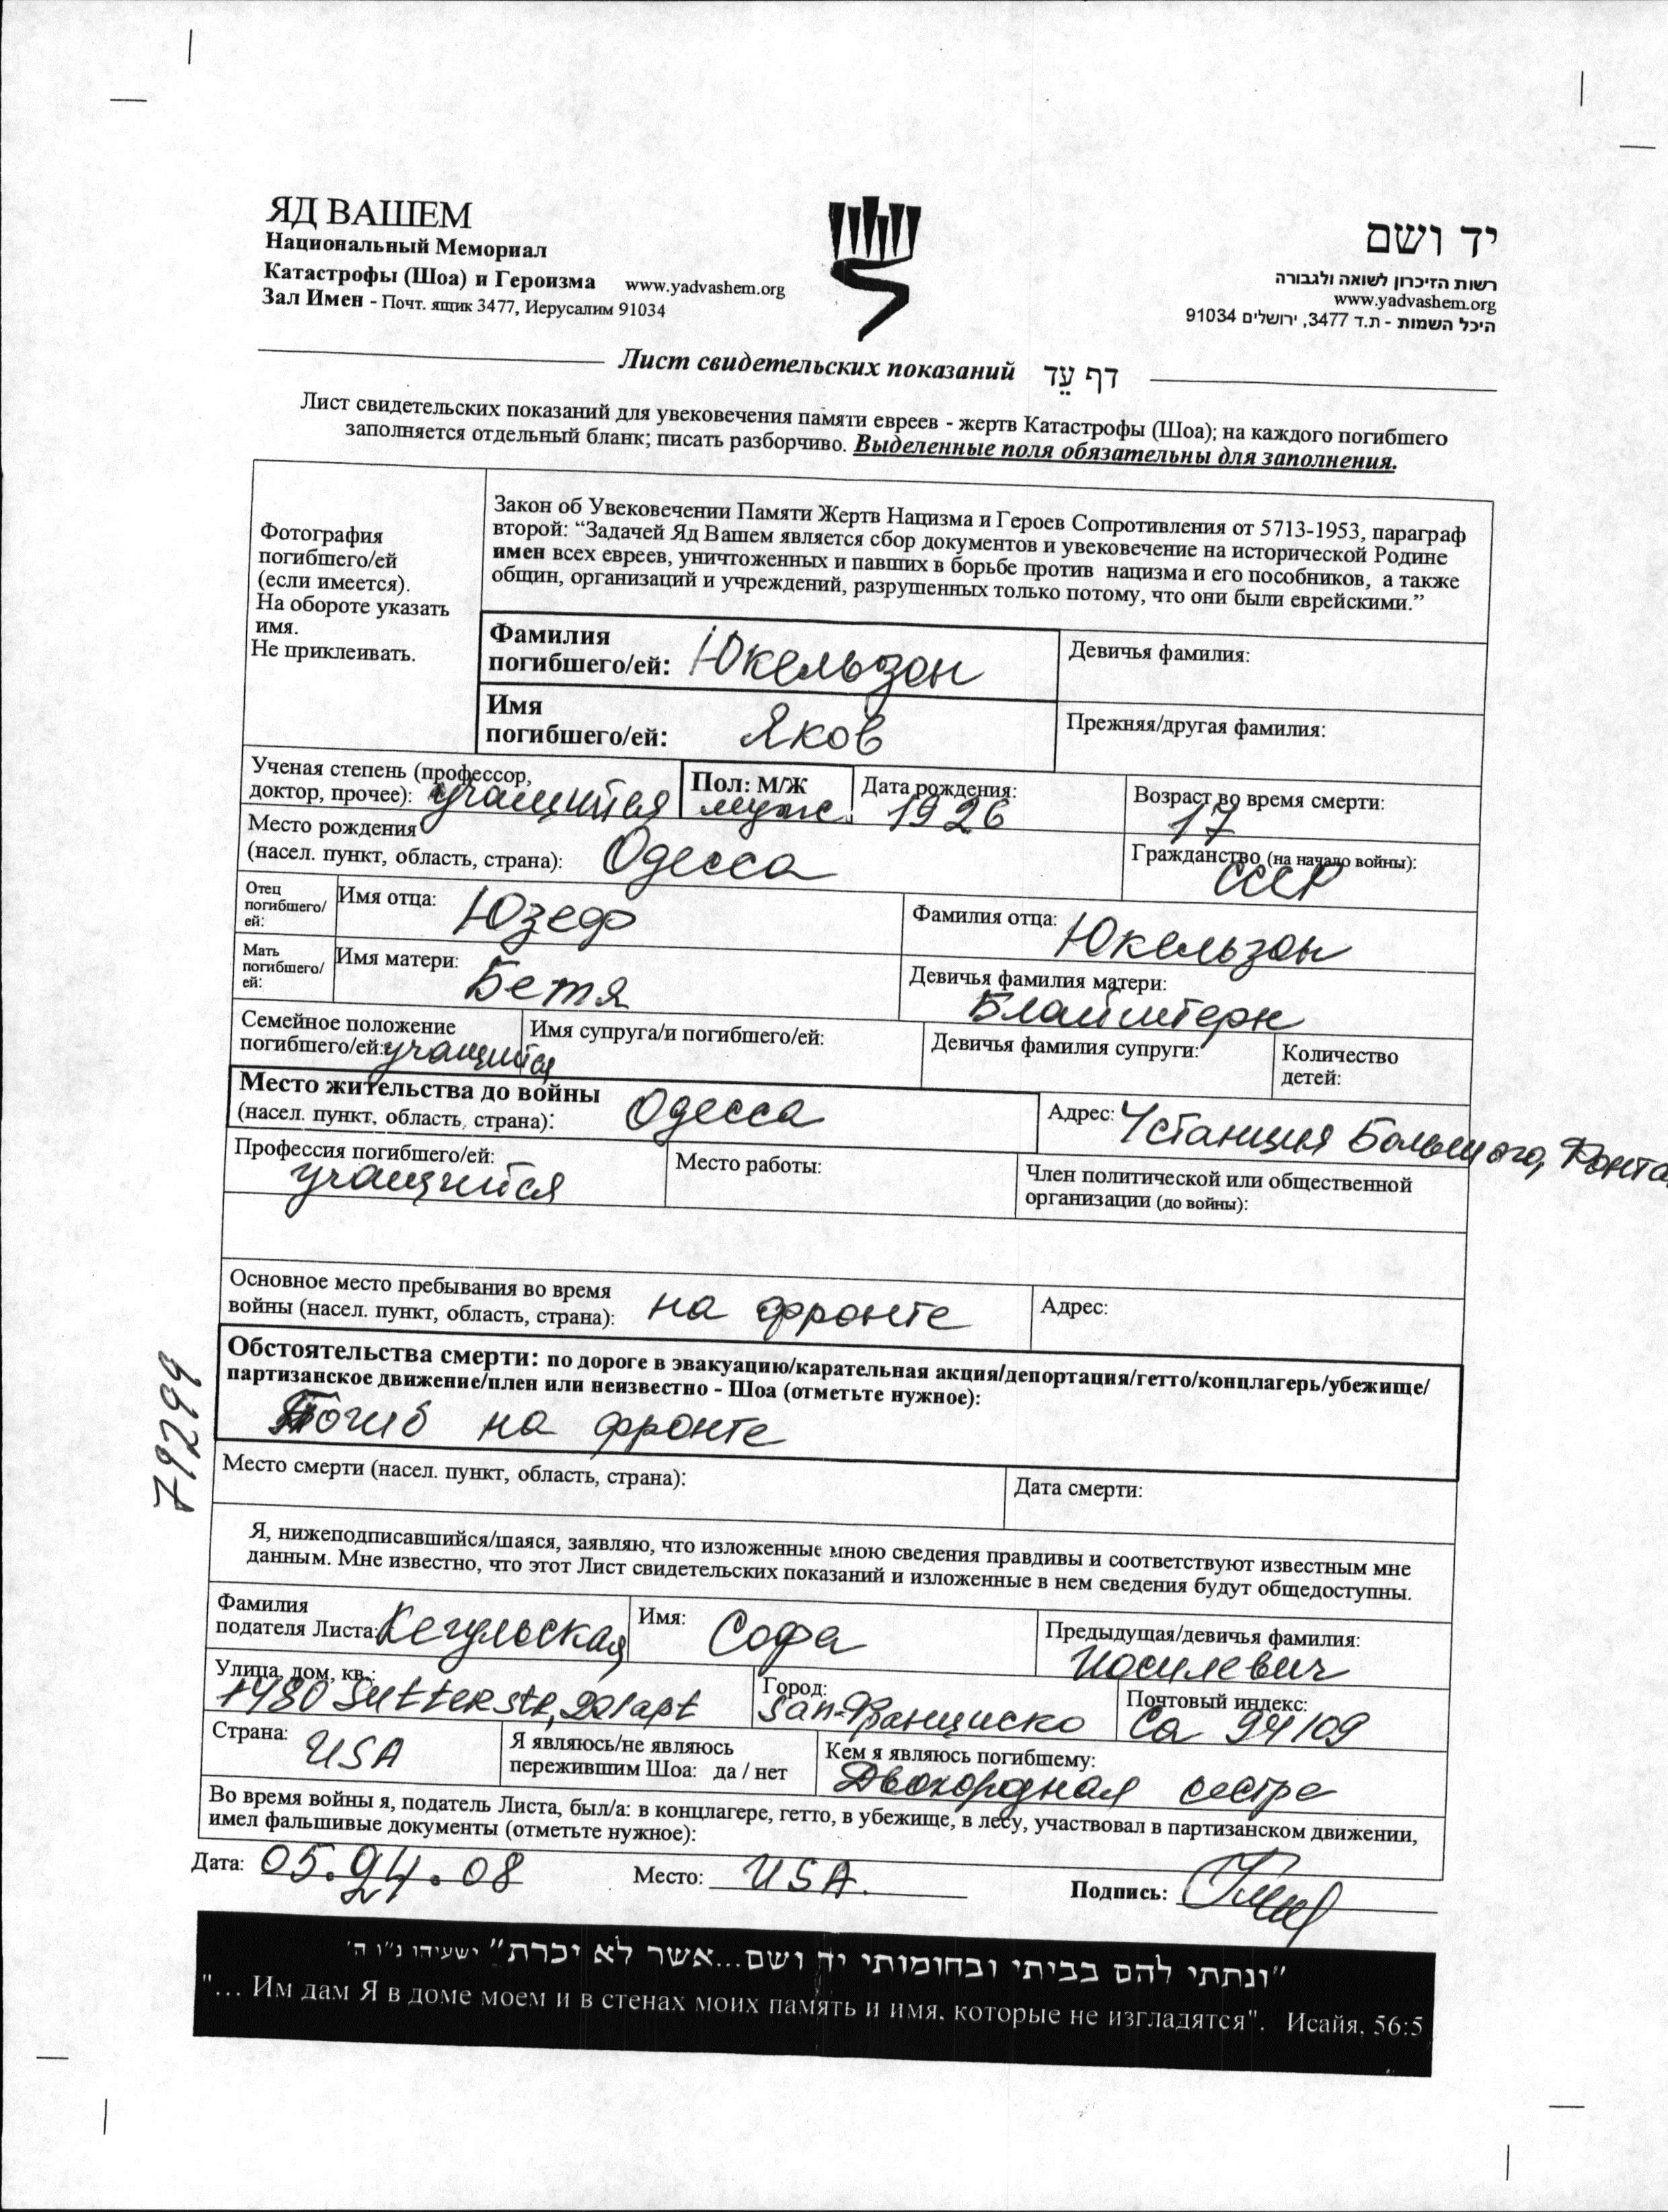 ЯД ВАШЕМ
Национальный Мемориал
Катастрофы (Шоа) и Героизма www.yadvashem.org
Зал Имен - Почт. ящик 3477, Иерусалим 91034
יד ושם
רשות הזיכרון לשואה ולגבורה
www.yadvashem.org
היכל השמות - ת.ד 3477, ירושלים 91034
Лист свидетельских показаний דף עֵד
Лист свидетельских показаний для увековечения памяти евреев - жертв Катастрофы (Шоа); на каждого погибшего
заполняется отдельный бланк; писать разборчиво. Выделенные поля обязательны для заполнения.
Фотография
погибшего/ей
(если имеется).
На обороте указать
имя.
Не приклеивать.
Закон об Увековечении Памяти Жертв Нацизма и Героев Сопротивления от 5713-1953, параграф
второй: “Задачей Яд Вашем является сбор документов и увековечение на исторической Родине
имен всех евреев, уничтоженных и павших в борьбе против нацизма и его пособников, а также
общин, организаций и учреждений, разрушенных только потому, что они были еврейскими.”
Фамилия
погибшего/ей: Юкельзон
Девичья фамилия:
Имя
погибшего/ей: Яков
Прежняя/другая фамилия:
Ученая степень (профессор,
доктор, прочее): учащийся
Пол: М/Ж
муж.
Дата рождения:
1926
Возраст во время смерти:
17
Место рождения
(насел. пункт, область, страна): Одесса
Гражданство (на начало войны):
СССР
Отец
погибшего/
ей:
Имя отца: Юзеф
Фамилия отца: Юкельзон
Мать
погибшего/
ей:
Имя матери: Бетя
Девичья фамилия матери:
Блайштерн
Семейное положение
погибшего/ей: учащийся
Имя супруга/и погибшего/ей:
Девичья фамилия супруги:
Количество
детей:
Место жительства до войны
(насел. пункт, область, страна): Одесса
Адрес: 4 Станция Большого, Фонта
Профессия погибшего/ей:
учащийся
Место работы:
Член политической или общественной
организации (до войны):
Основное место пребывания во время
войны (насел. пункт, область, страна): на фронте
Адрес:
Обстоятельства смерти: по дороге в эвакуацию/карательная акция/депортация/гетто/концлагерь/убежище/
партизанское движение/плен или неизвестно - Шоа (отметьте нужное):
Погиб на фронте
79299
Место смерти (насел. пункт, область, страна):
Дата смерти:
Я, нижеподписавшийся/шаяся, заявляю, что изложенные мною сведения правдивы и соответствуют известным мне
данным. Мне известно, что этот Лист свидетельских показаний и изложенные в нем сведения будут общедоступны.
Фамилия
подателя Листа: Кегульская
Имя: Софа
Предыдущая/девичья фамилия:
Иосилевич
Улица, дом, кв.:
1980 Sutter str, 221 apt
Город:
Сан-Франциско
Почтовый индекс:
Ca 94109
Страна: USA
Я являюсь/не являюсь
пережившим Шоа: да / нет
Кем я являюсь погибшему:
Двоюродная сестра
Во время войны я, податель Листа, был/а: в концлагере, гетто, в убежище, в лесу, участвовал в партизанском движении,
имел фальшивые документы (отметьте нужное):
Дата: 05.24.08
Место: USA.
Подпись:
"ונתתי להם בביתי ובחומותי יד ושם...אשר לא יכרת" ישעיהו נ"ו ה'
"... Им дам Я в доме моем и в стенах моих память и имя, которые не изгладятся". Исайя, 56:5